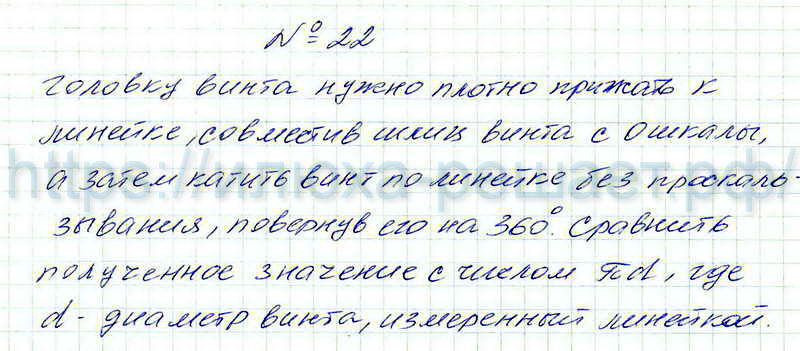 № 22
головку винта нужно плотно прижать к
линейке, совместив шлиц винта с 0 шкалы,
а затем катить винт по линейке без проскаль-
https://илюха-решает.рф/
зывания, повернув его на 360°. Сравнить
полученное значение с числом πd, где
d - диаметр винта, измеренный линейкой.